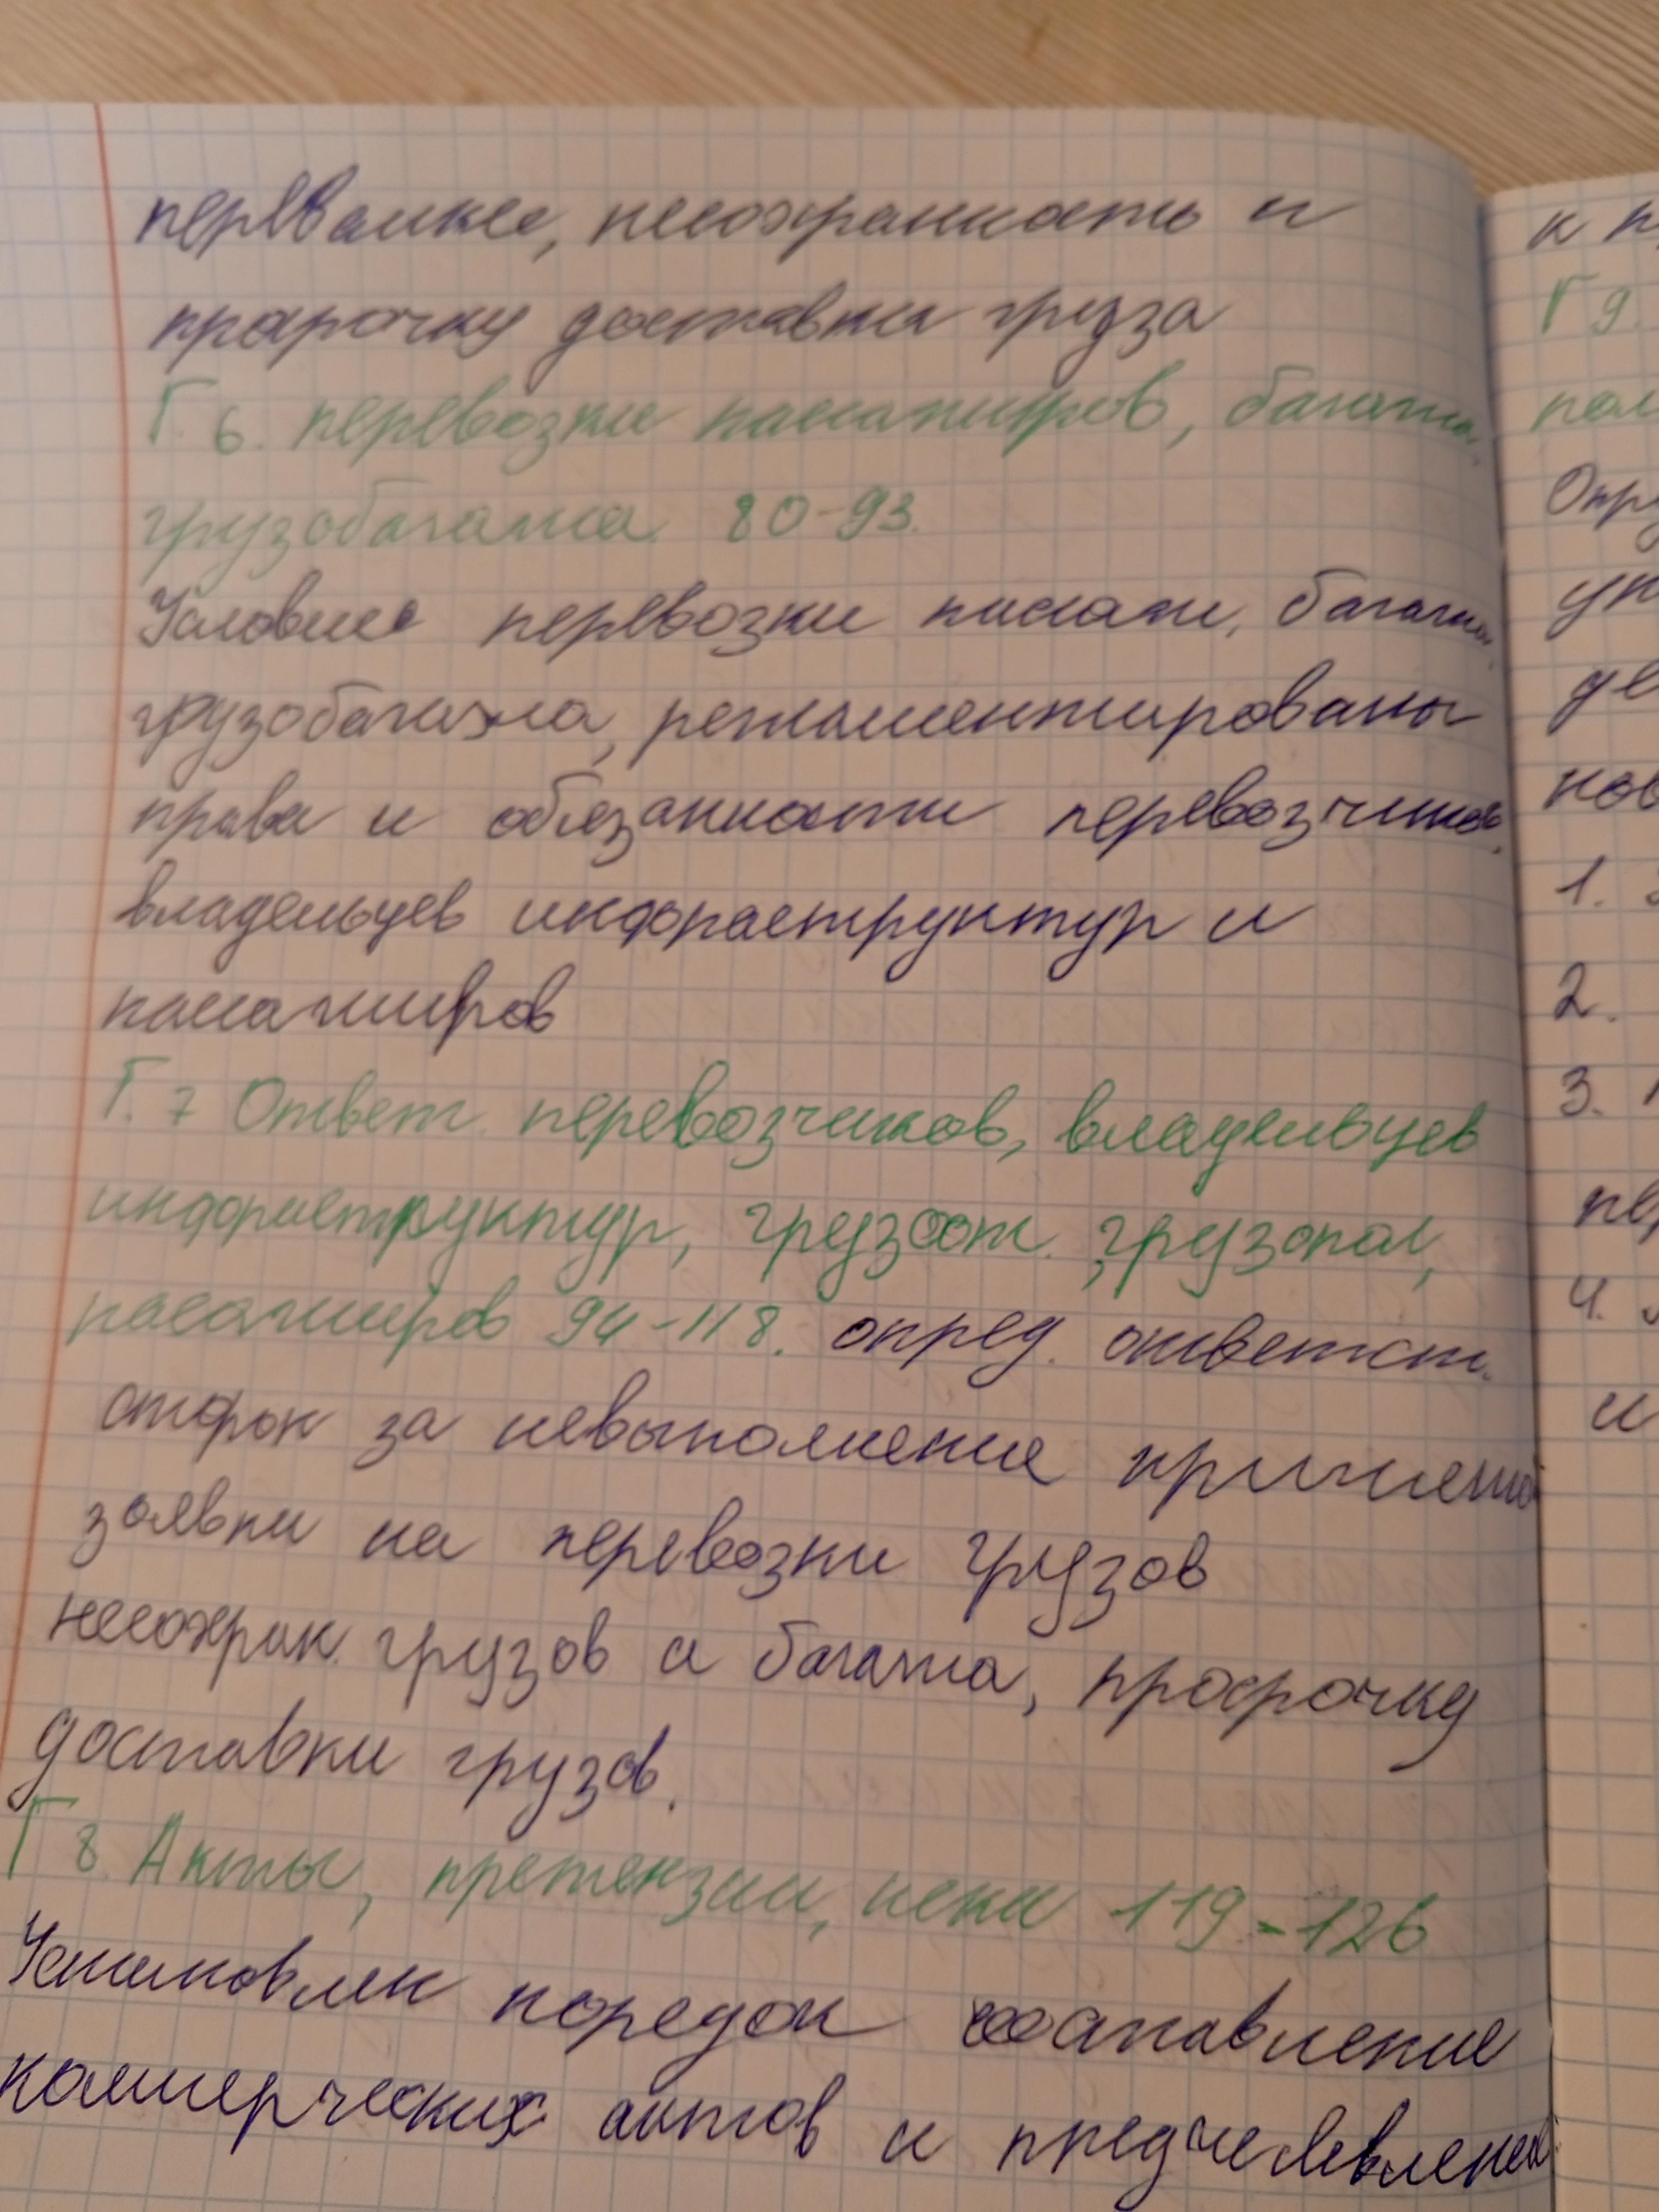 перевалке, несохранность и
пророчку доставки груза
Г. 6. перевозки пассажиров, багажа,
грузобагажа 80-93.
Условие перевозки пассаж, багажа,
грузобагажа, регламентированы
права и обязанности перевозчиков,
владельцев инфраструктур и
пассажиров
Г. 7 Ответ. перевозчиков, владельцев
инфраструктур, грузоот., грузопол,
пассажиров 94-118. опред. ответст.
сторон за невыполнение принятой
заявки на перевозки грузов
несохран. грузов и багажа, просрочку
доставки грузов.
Г 8. Акты, претензии, иски 119-126
Установлен порядок составление
коммерческих актов и предъявления
к
Г 9.
пол
Опр
уп
де
нов
1.
2.
3.
пер
4.
и